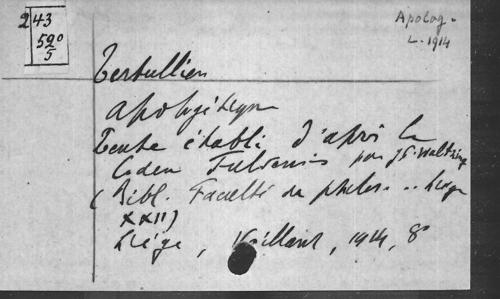 243
590
5
Apolog.
L. 1914
Tertullien
Apologétique
Texte établi d'après le
Codex Fuldensis par J. P. Waltzing
(Bibl. Faculté de philos. .. Liège
XXII)
Liége, Vaillant, 1914, 8°